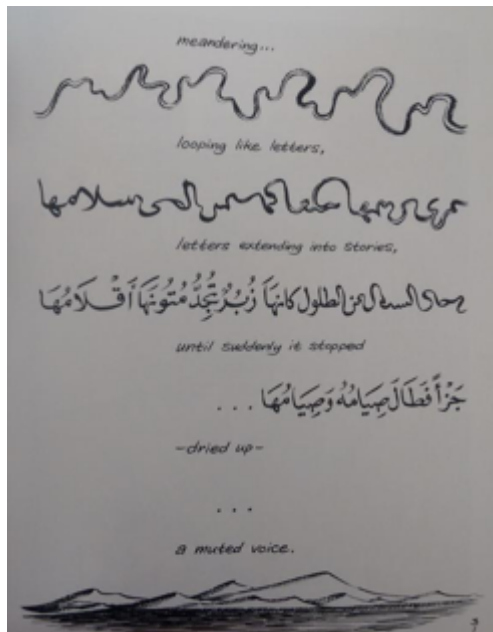 meandering...
looping like letters,
letters extending into stories,
عن الطلول كانهَا زُبُرٌ تُجِدُّ مُتُونَهَا أَقْلَامُهَا
until suddenly it stopped
جَزْأً فَطَالَ صِيَامُهُ وَصِيَامُهَا ...
-dried up-
...
a muted voice.